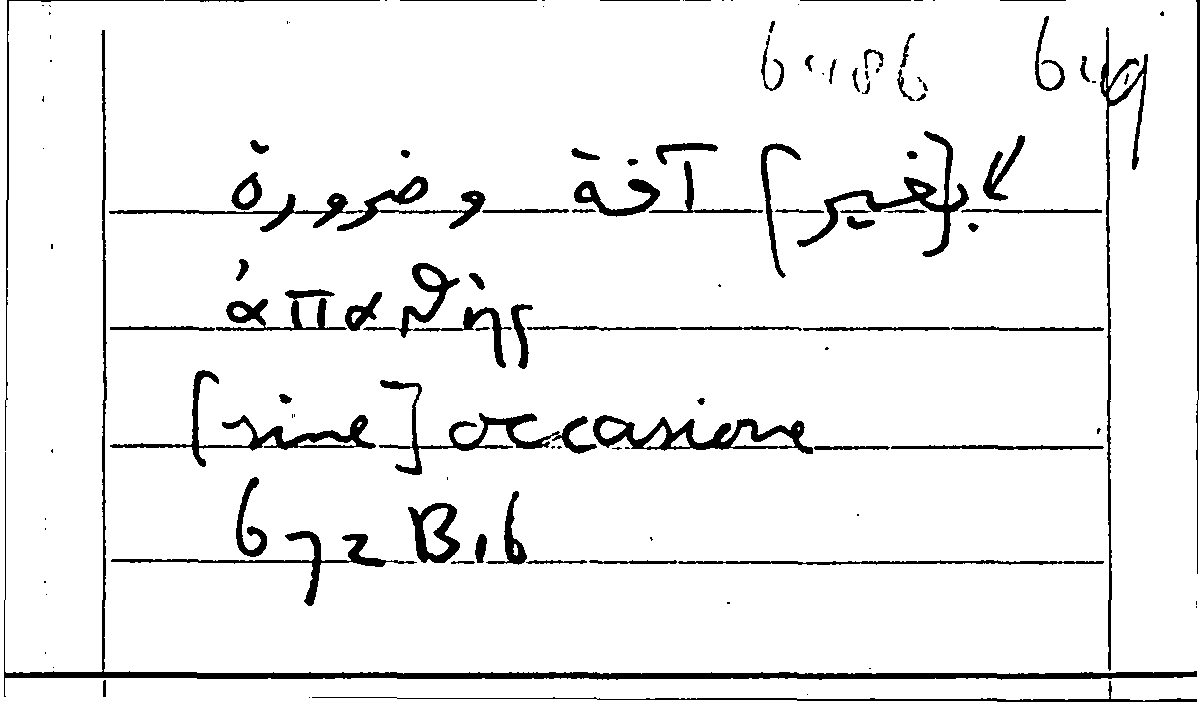 [بغير] آفة وضرورة
ἀπαθὴς
[sine] occasione
672 B16